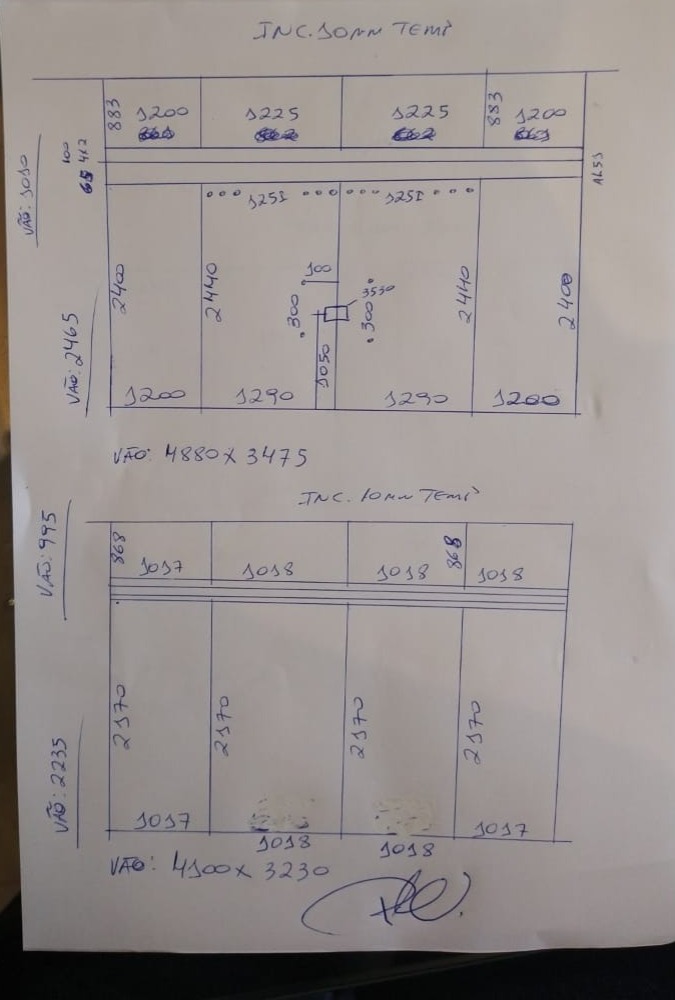 INC. 10MM TEMP
883 1200 1225 1225 883 1200
VÃO: 1010 100 4x2 AL53
1251 1251
2400 2440 100 3530 2440 2400
300 300
VÃO: 2465 1050
1200 1290 1290 1200
VÃO: 4880 X 3475
INC. 10MM TEMP
VÃO: 995 868 1017 1018 1018 868 1018
2170 2170 2170 2170
VÃO: 2235 1017 1018 1018 1017
VÃO: 4100 X 3230